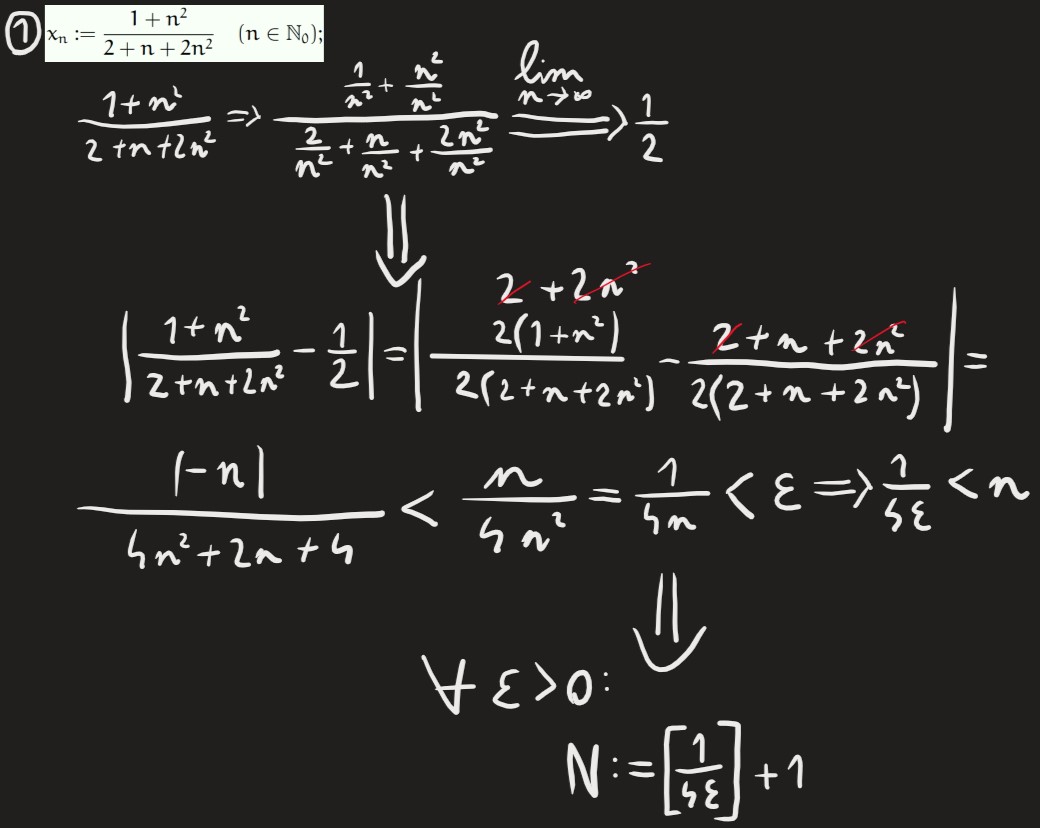 ① xₙ := (1 + n²)/(2 + n + 2n²) (n ∈ ℕ₀);
(1+n²)/(2+n+2n²) ⇒ (1/n² + n²/n²)/(2/n² + n/n² + 2n²/n²) ⟹ lim n→∞ 1/2
⇓
2 + 2n²
|(1+n²)/(2+n+2n²) − 1/2| = |2(1+n²)/(2(2+n+2n²)) − (2+n+2n²)/(2(2+n+2n²))| =
|−n|/(4n²+2n+4) < n/(4n²) = 1/(4n) < ε ⇒ 1/(4ε) < n
⇓
∀ ε>0:
N := [1/(4ε)] + 1